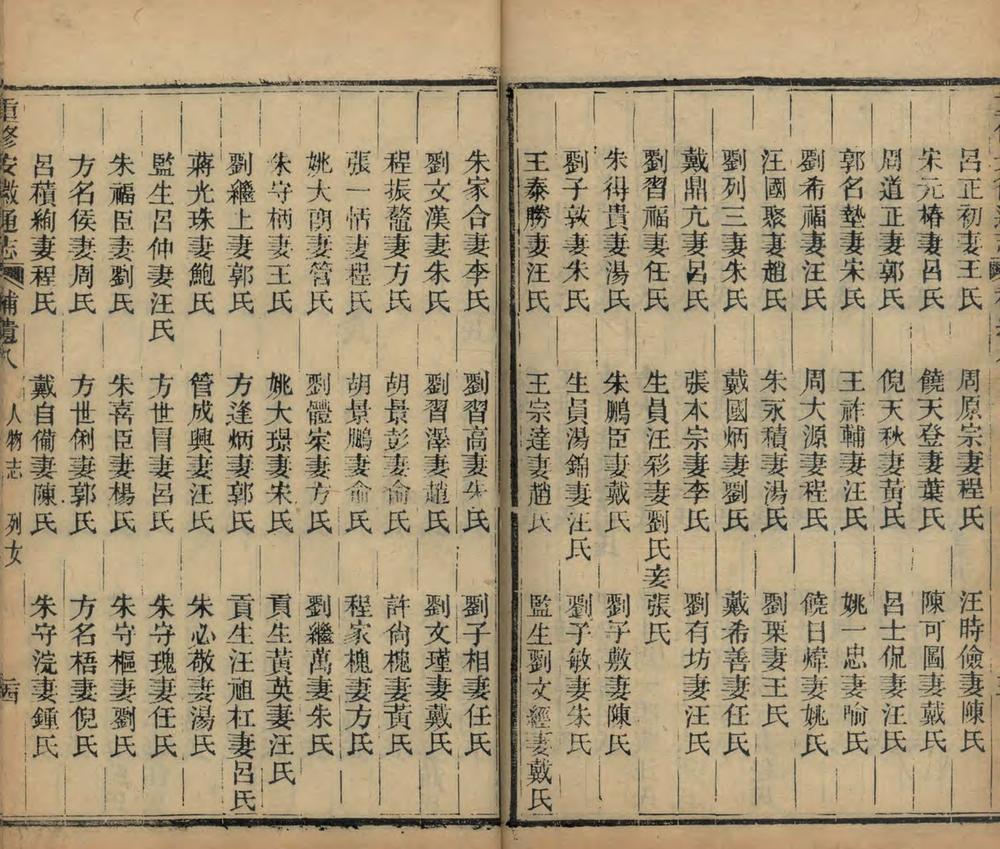 呂正初妻王氏　周原宗妻程氏　汪時儉妻陳氏
宋元椿妻呂氏　饒天登妻葉氏　陳可圖妻戴氏
周道正妻郭氏　倪天秋妻黃氏　呂士侃妻汪氏
郭名墊妻宋氏　王祚輔妻汪氏　姚一忠妻喻氏
劉希福妻汪氏　周大源妻程氏　饒日煒妻姚氏
汪國聚妻趙氏　朱永積妻湯氏　劉栗妻王氏
劉列三妻朱氏　戴國炳妻劉氏　戴希善妻任氏
戴鼎亢妻呂氏　張本宗妻李氏　劉有坊妻汪氏
劉習福妻任氏　生員汪彩妻劉氏妾張氏
朱得貴妻湯氏　朱鵬臣妻戴氏　劉子敷妻陳氏
劉子敦妻朱氏　生員湯錦妻汪氏　劉子敏妻朱氏
王泰勝妻汪氏　王宗達妻趙氏　監生劉文經妻戴氏
朱家合妻李氏　劉習高妻朱氏　劉子相妻任氏
劉文漢妻朱氏　劉習澤妻趙氏　劉文瑾妻戴氏
程振鼇妻方氏　胡景彭妻俞氏　許尙槐妻黃氏
張一恬妻程氏　胡景鵬妻俞氏　程家槐妻方氏
姚大朗妻管氏　劉體宋妻方氏　劉繼萬妻朱氏
朱守柄妻王氏　姚大璟妻宋氏　貢生黃英妻汪氏
劉繼上妻郭氏　方逢炳妻郭氏　貢生汪祖杠妻呂氏
蔣光珠妻鮑氏　管成興妻汪氏　朱必敬妻湯氏
監生呂仲妻汪氏　方世冐妻呂氏　朱守瑰妻任氏
朱福臣妻劉氏　朱喜臣妻楊氏　朱守樞妻劉氏
方名侯妻周氏　方世俐妻郭氏　方名梧妻倪氏
呂積絢妻程氏　戴自備妻陳氏　朱守浣妻鍾氏
重修安徽通志　補遺八　人物志　列女